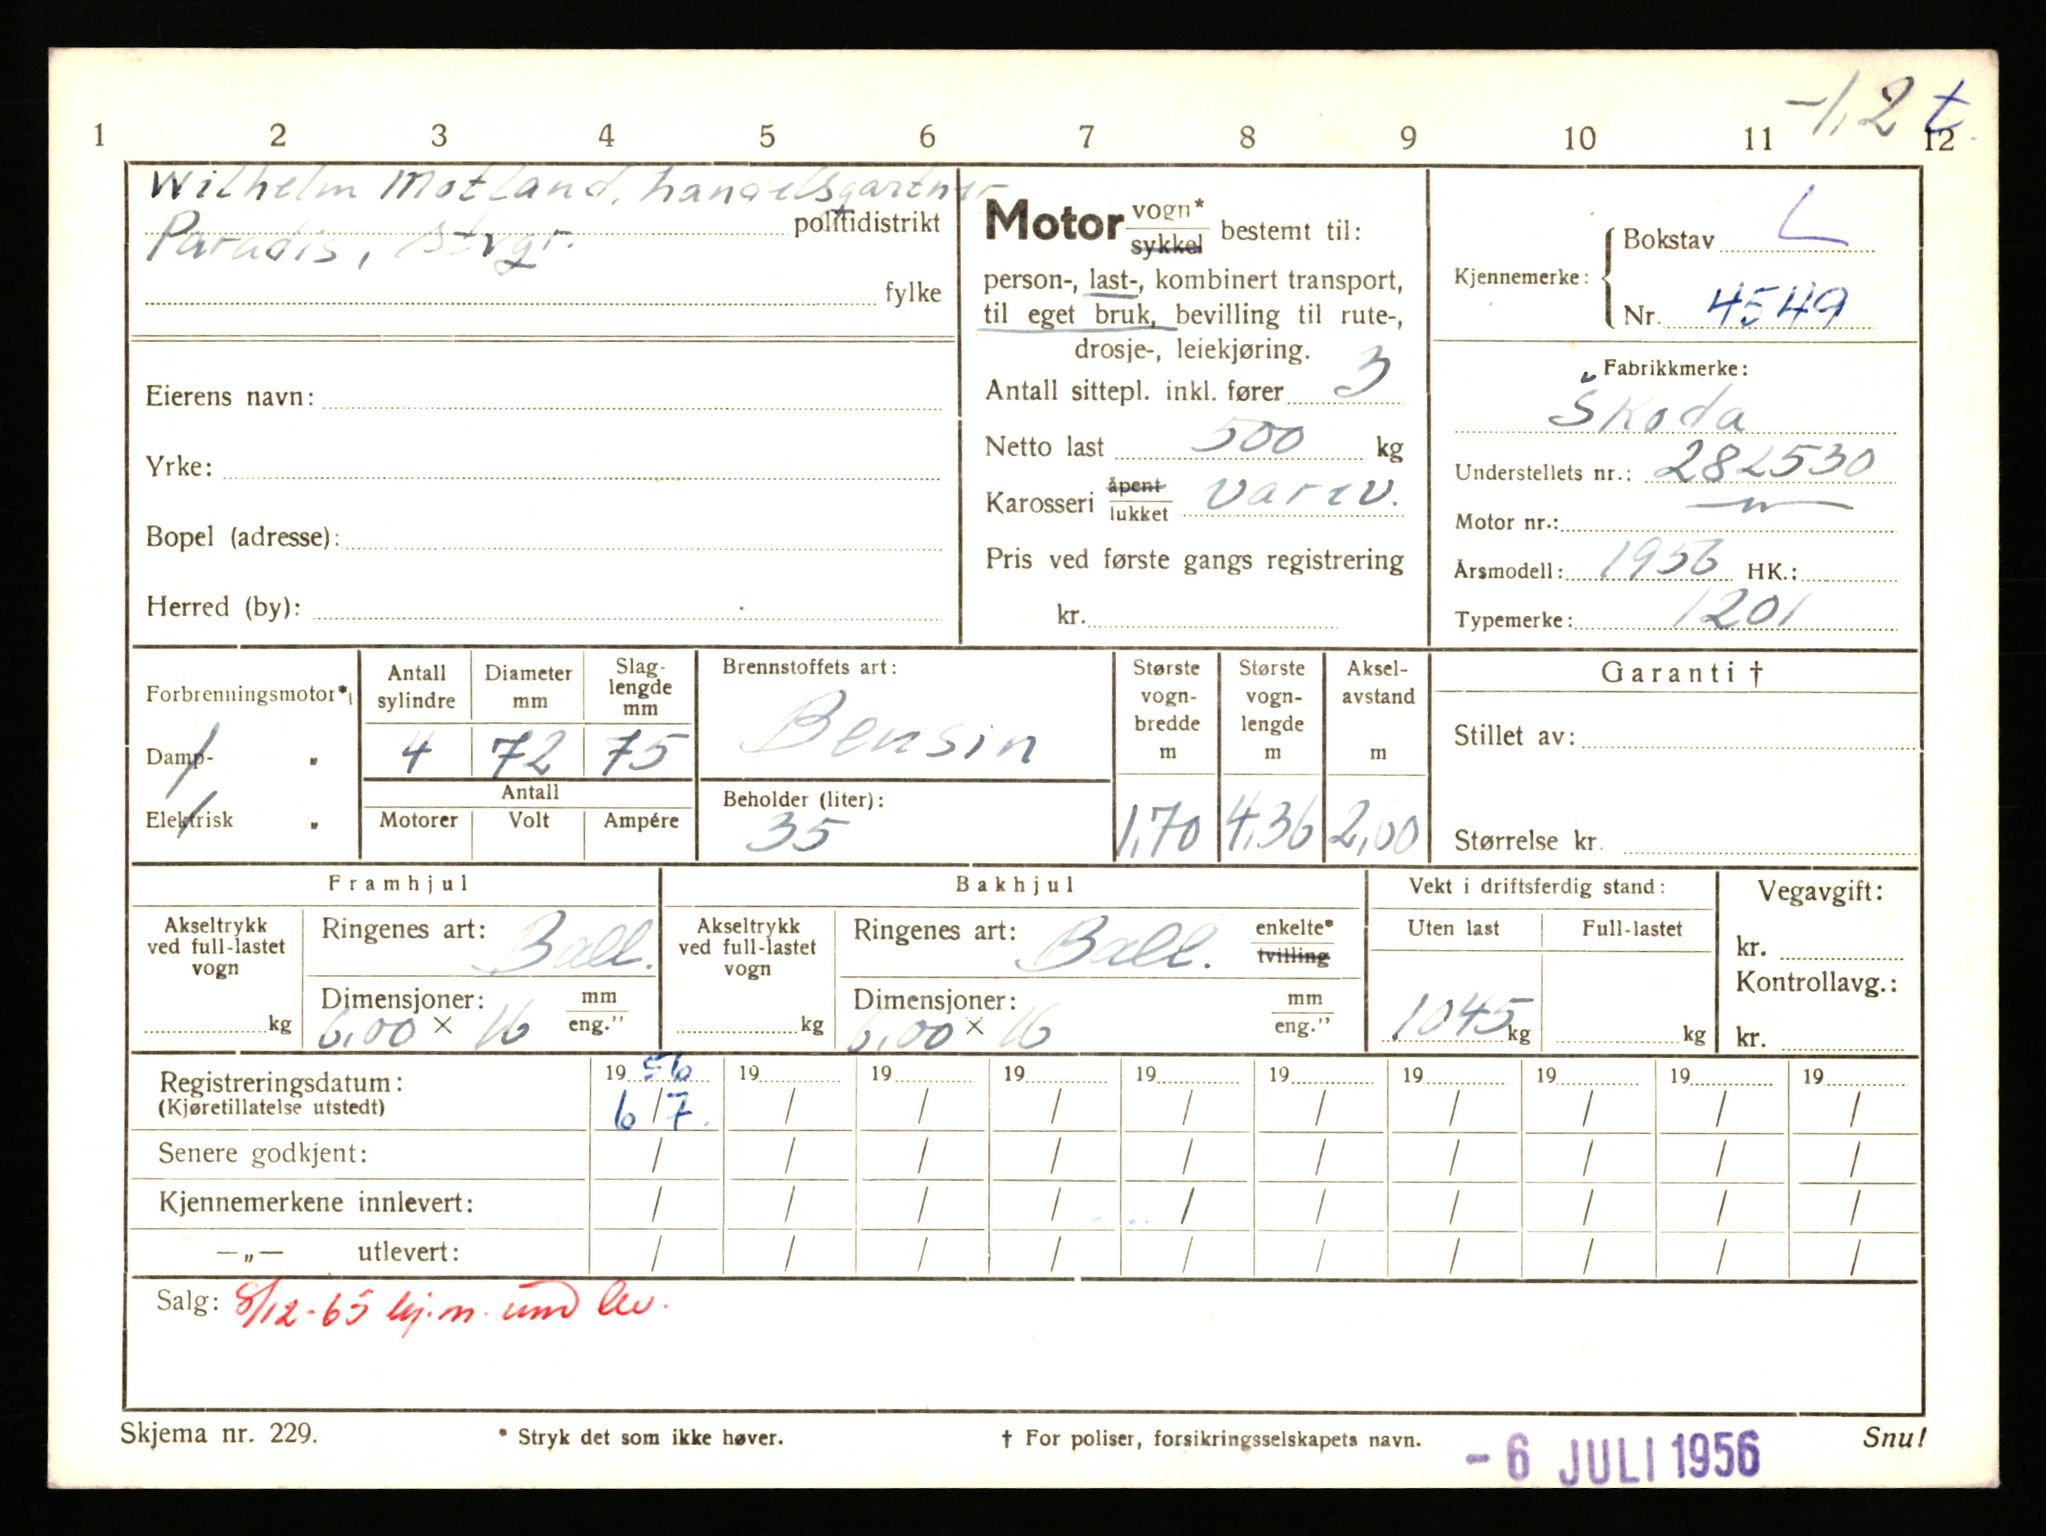 -1,2 t
1 2 3 4 5 6 7 8 9 10 11 12
Wilhelm Motland, handelsgartner
politidistrikt
Paradis,
fylke
Eierens navn:
Yrke:
Bopel (adresse):
Herred (by):
Motor vogn* sykkel bestemt til:
person-, last-, kombinert transport,
til eget bruk, bevilling til rute-,
drosje-, leiekjøring.
Antall sittepl. inkl. fører 3
Netto last 500 kg
Karosseri åpent lukket varev.
Pris ved første gangs registrering
kr.
Kjennemerke: Bokstav L
Nr. 4549
Fabrikkmerke:
Škoda
Understellets nr.: 282530
Motor nr.:
Årsmodell: 1956 HK.:
Typemerke: 1201
Forbrenningsmotor*)
Damp- "
Elektrisk "
Antall sylindre
Diameter mm
Slaglengde mm
4 72 75
Antall
Motorer Volt Ampére
Brennstoffets art:
Bensin
Beholder (liter):
35
Største vogn-bredde m
1,70
Største vogn-lengde m
4,36
Aksel-avstand m
2,60
Garanti †
Stillet av:
Størrelse kr.
Framhjul
Akseltrykk ved full-lastet vogn
kg
Ringenes art: Ball.
Dimensjoner: mm eng."
6,00 × 16
Bakhjul
Akseltrykk ved full-lastet vogn
kg
Ringenes art: Ball. enkelte* tvilling
Dimensjoner: mm eng."
6,00 × 16
Vekt i driftsferdig stand:
Uten last Full-lastet
1045 kg kg
Vegavgift:
kr.
Kontrollavg.:
kr.
Registreringsdatum: 19 56 19 19 19 19 19 19 19 19 19
(Kjøretillatelse utstedt) 6/7. / / / / / / / / /
Senere godkjent: / / / / / / / / / /
Kjennemerkene innlevert: / / / / / / / / / /
—„— utlevert: / / / / / / / / / /
Salg: 8/12-65 kj.m.
Skjema nr. 229.
* Stryk det som ikke høver.
† For poliser, forsikringsselskapets navn.
Snu!
- 6 JULI 1956